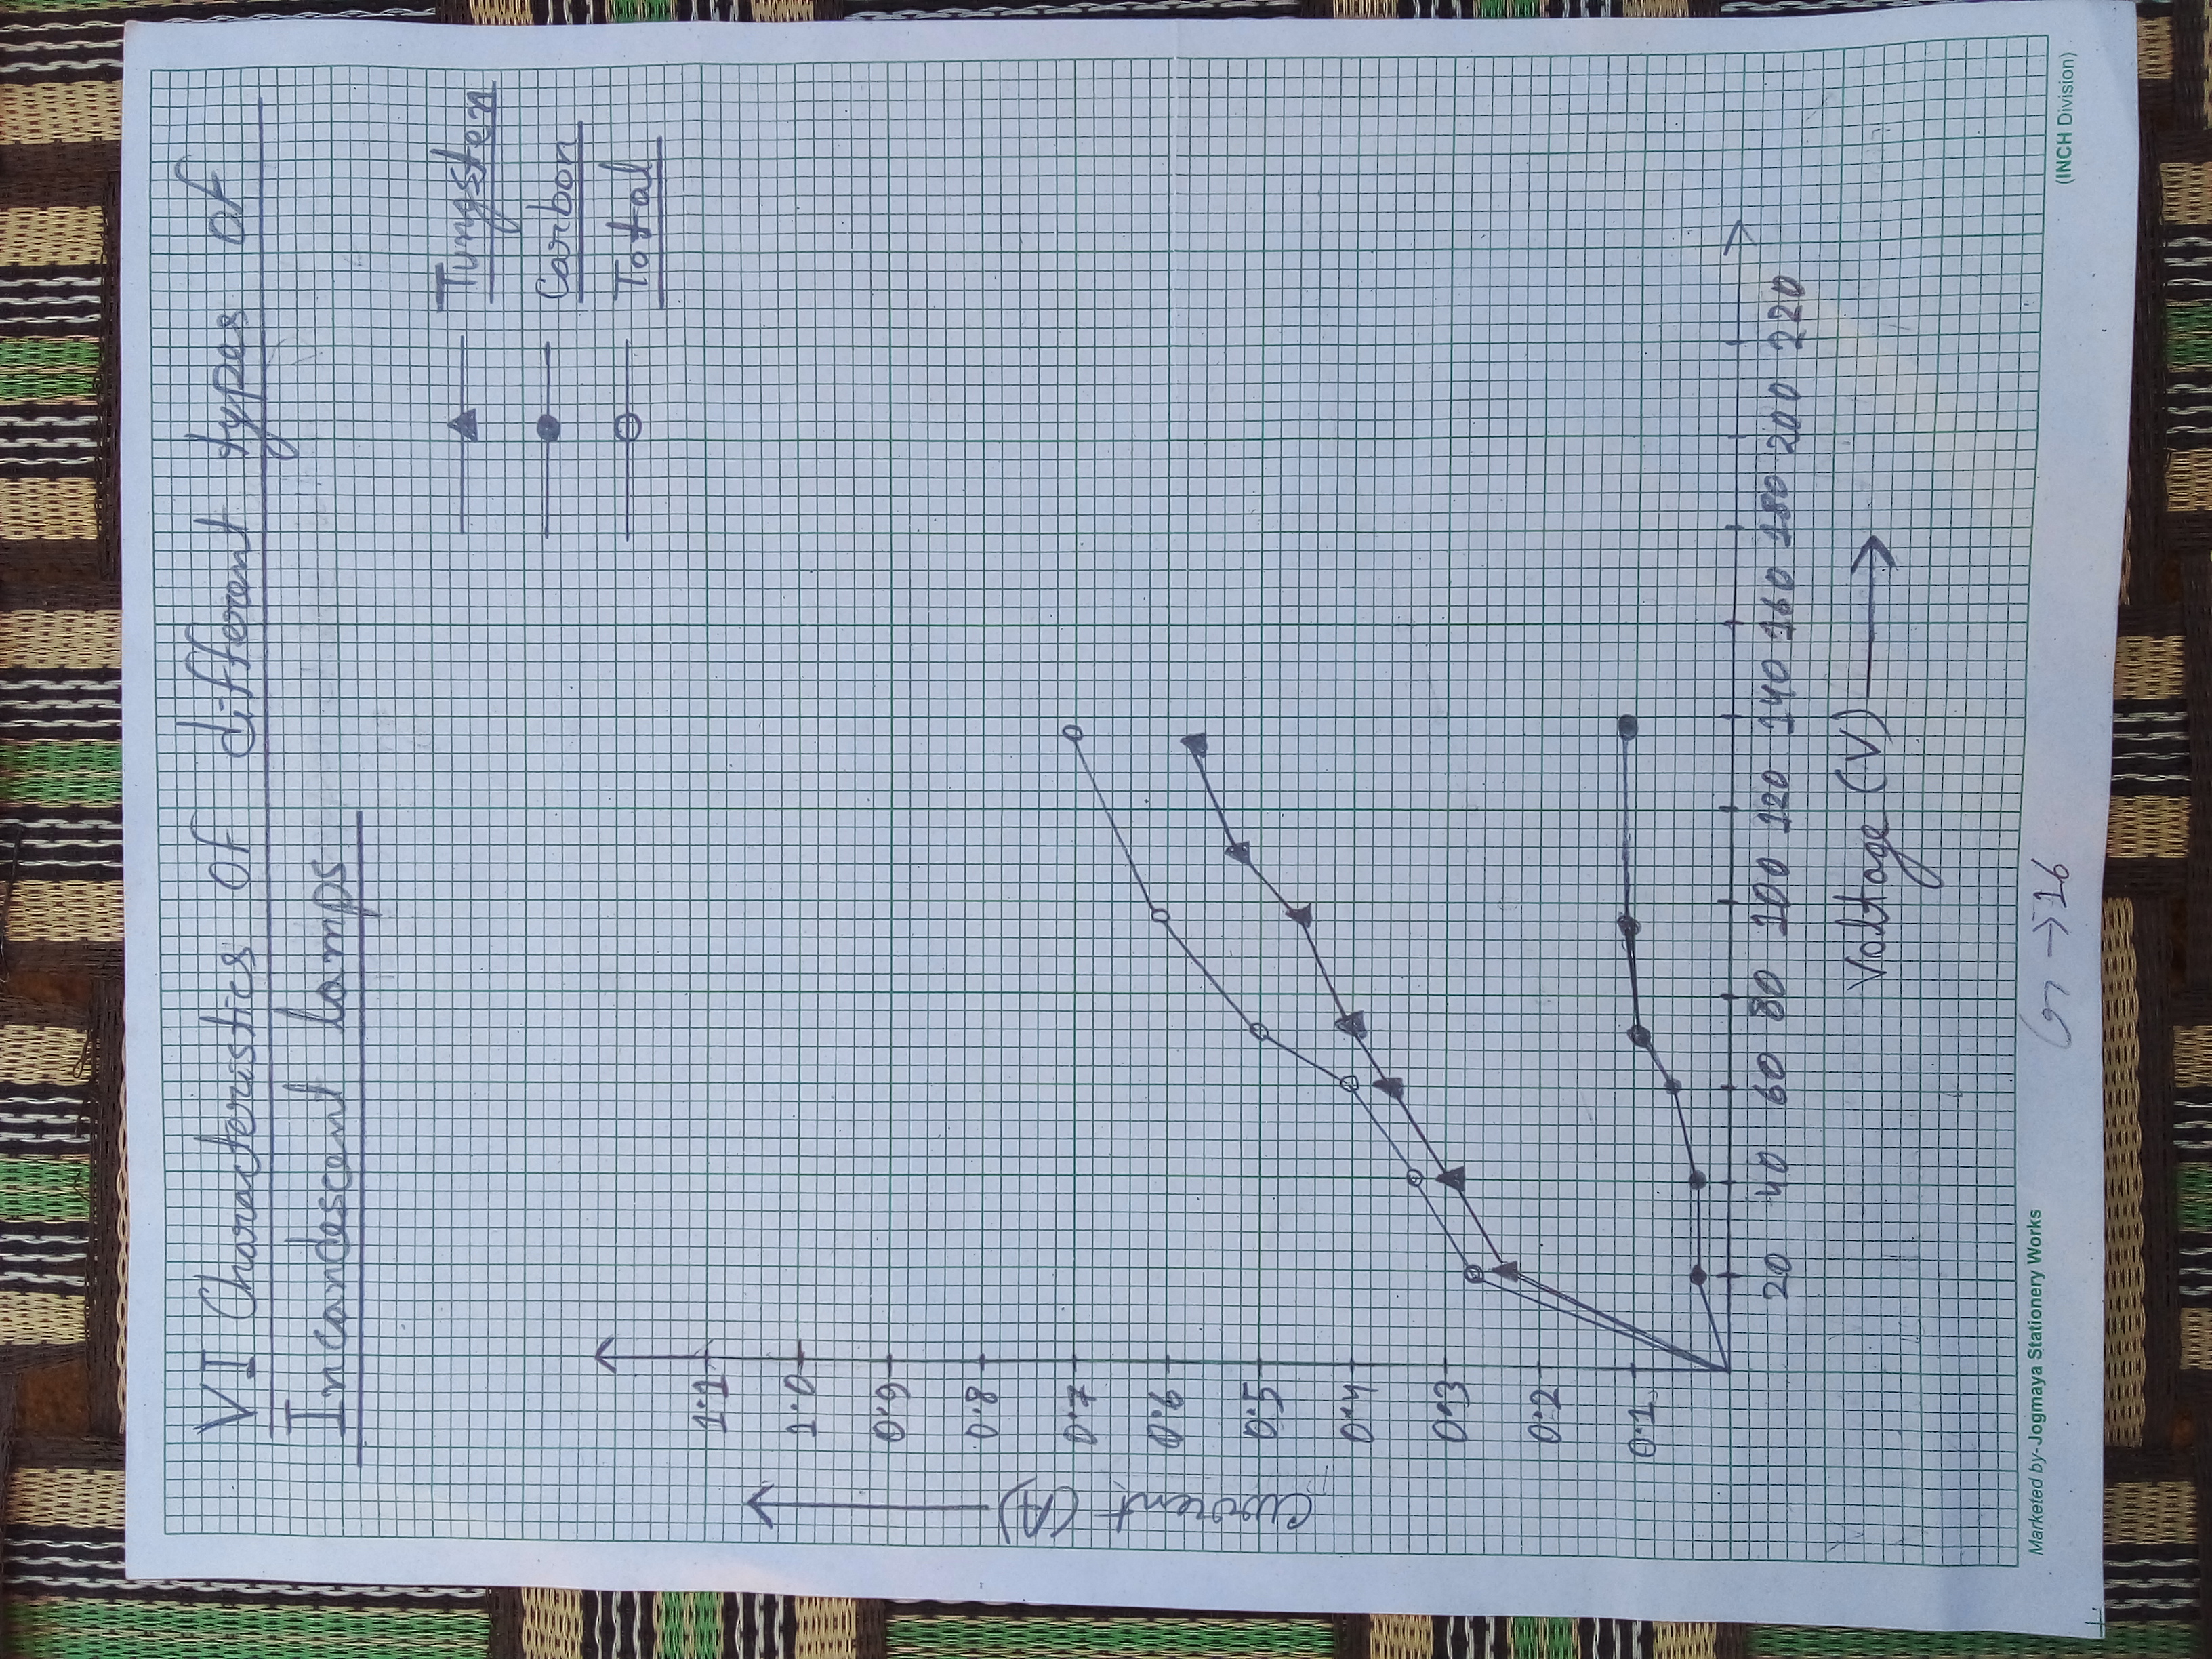 VI Characteristics Of different types of
Incandescent lamps
Tungsten
Carbon
Total
1.1
1.0
0.9
0.8
0.7
0.6
0.5
0.4
0.3
0.2
0.1
Current (A)
20 40 60 80 100 120 140 160 180 200 220
Voltage (V)
Marketed by- Jogmaya Stationery Works
→16
(INCH Division)